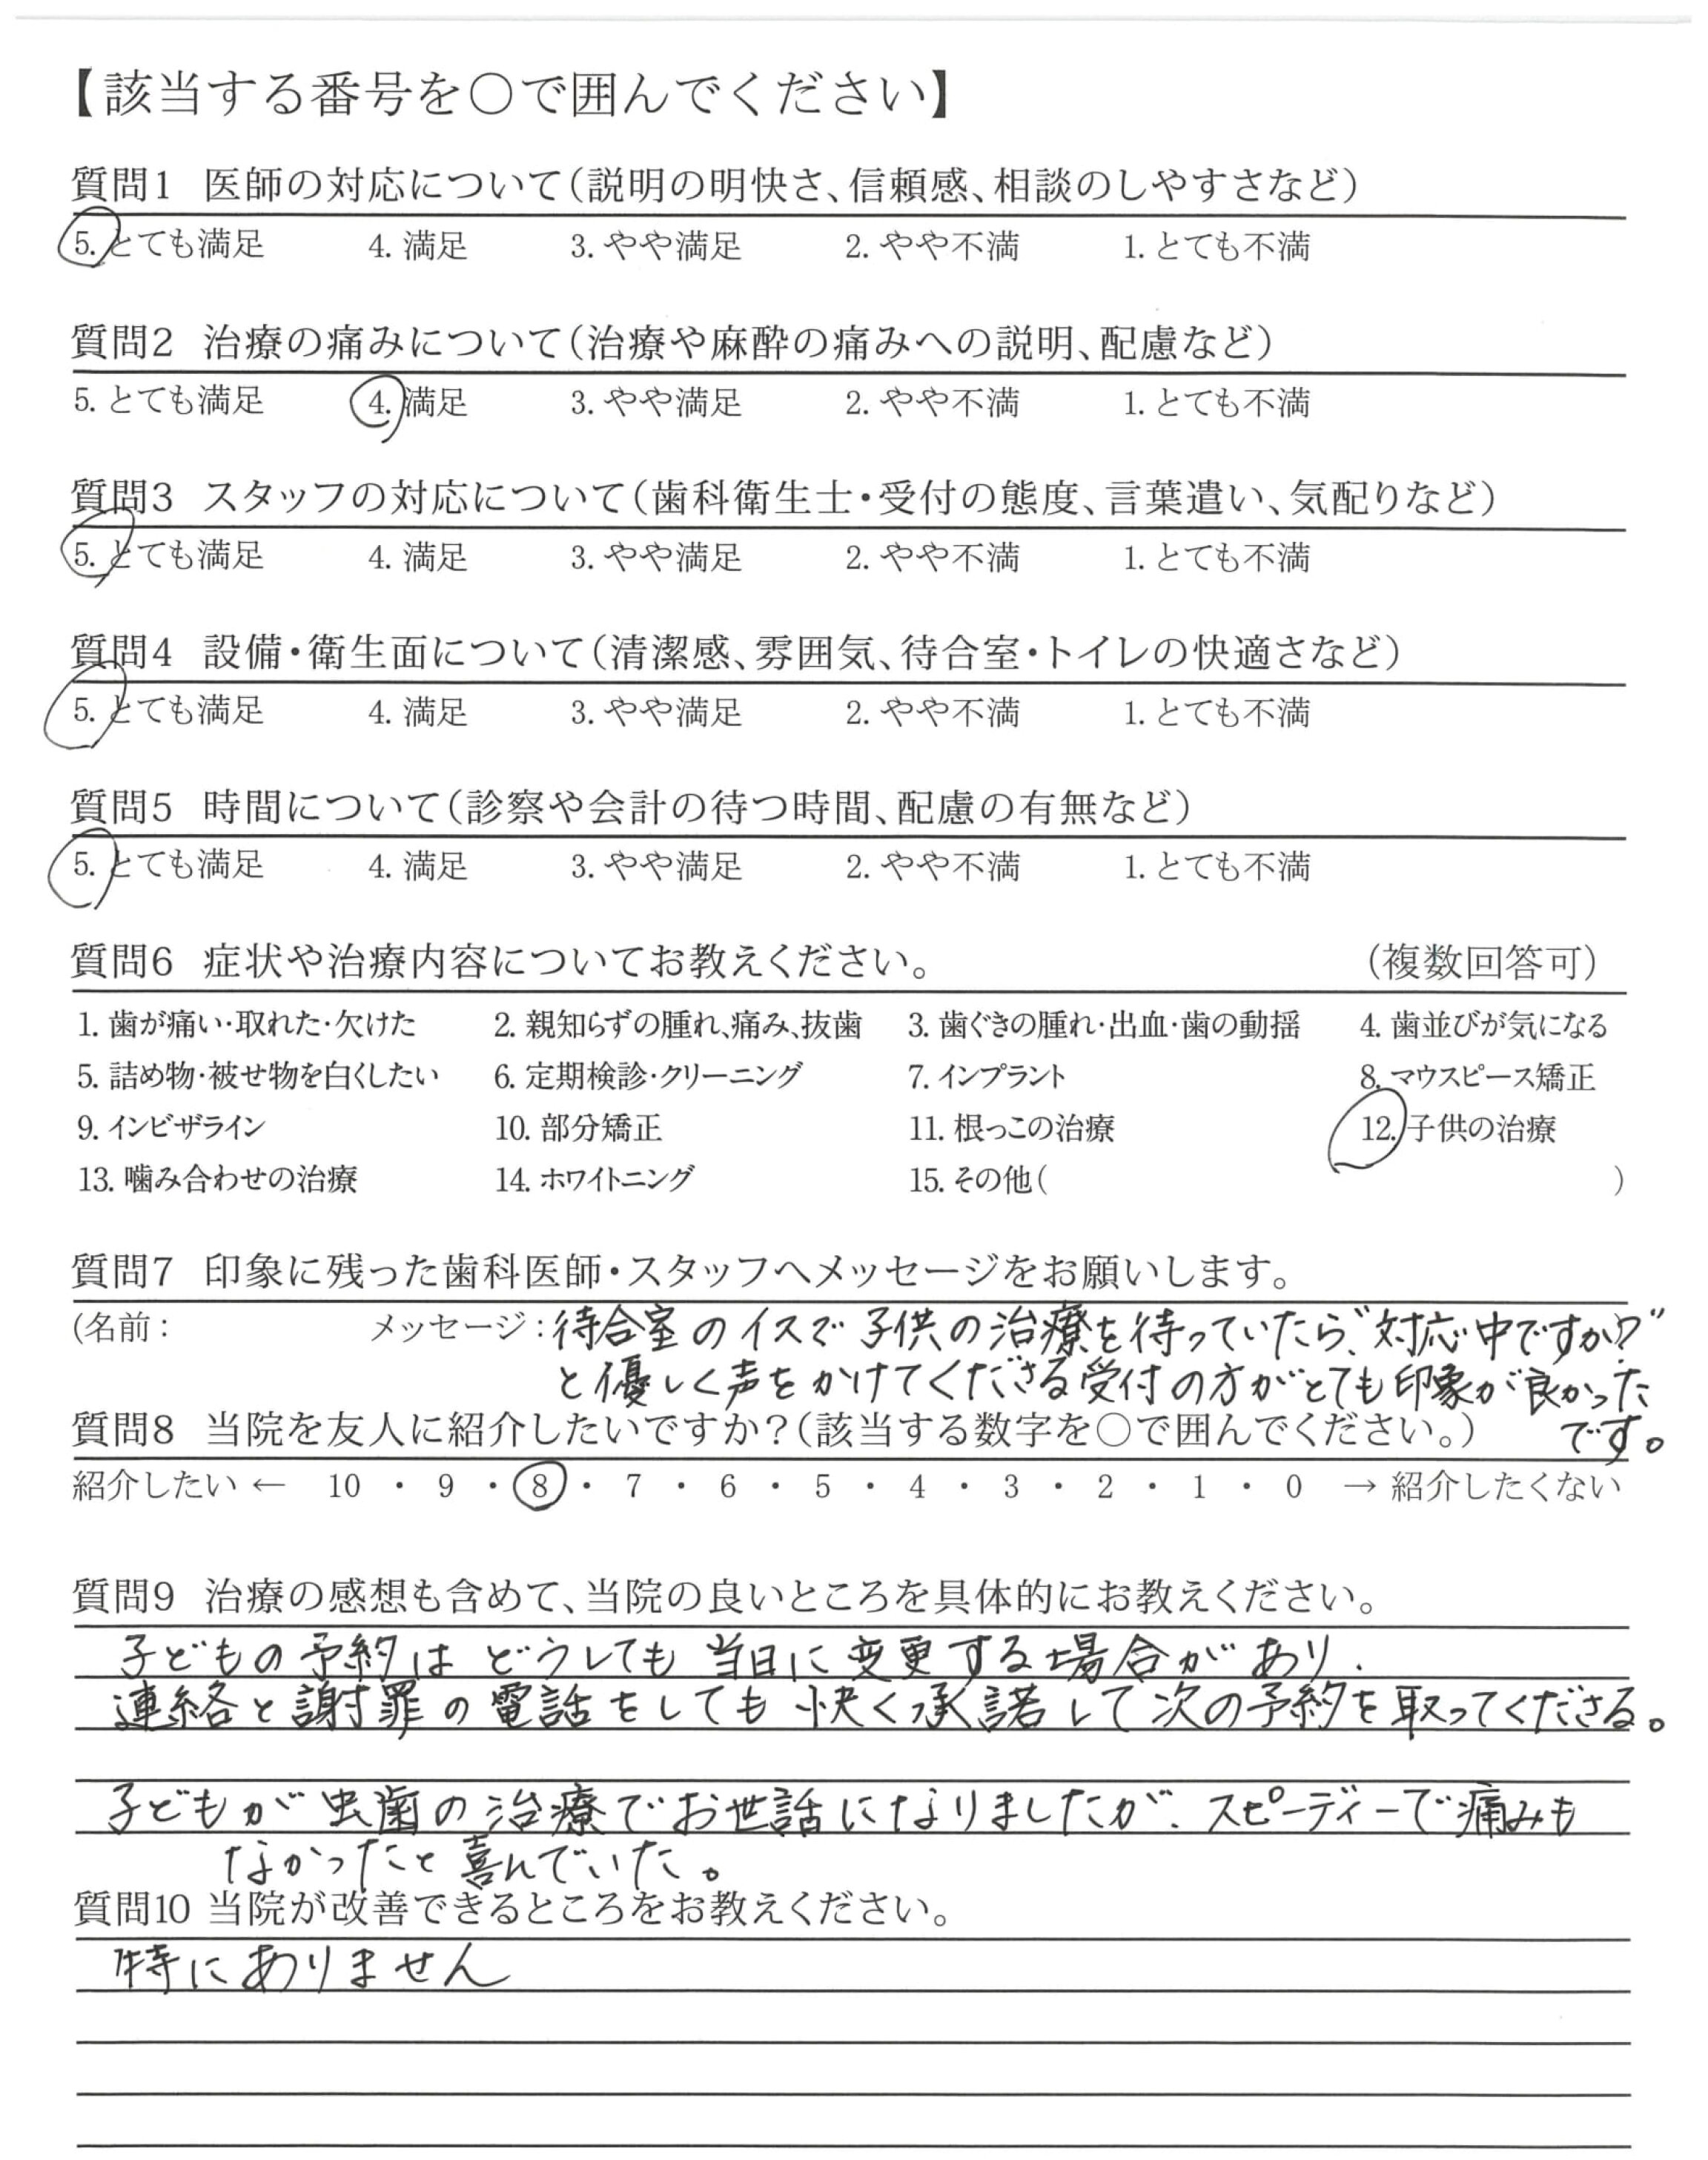 【該当する番号を○で囲んでください】
質問1 医師の対応について(説明の明快さ、信頼感、相談のしやすさなど)
5. とても満足 4. 満足 3. やや満足 2. やや不満 1. とても不満
質問2 治療の痛みについて(治療や麻酔の痛みへの説明、配慮など)
5. とても満足 4. 満足 3. やや満足 2. やや不満 1. とても不満
質問3 スタッフの対応について(歯科衛生士・受付の態度、言葉遣い、気配りなど)
5. とても満足 4. 満足 3. やや満足 2. やや不満 1. とても不満
質問4 設備・衛生面について(清潔感、雰囲気、待合室・トイレの快適さなど)
5. とても満足 4. 満足 3. やや満足 2. やや不満 1. とても不満
質問5 時間について(診察や会計の待つ時間、配慮の有無など)
5. とても満足 4. 満足 3. やや満足 2. やや不満 1. とても不満
質問6 症状や治療内容についてお教えください。 (複数回答可)
1. 歯が痛い・取れた・欠けた 2. 親知らずの腫れ、痛み、抜歯 3. 歯ぐきの腫れ・出血・歯の動揺 4. 歯並びが気になる
5. 詰め物・被せ物を白くしたい 6. 定期検診・クリーニング 7. インプラント 8. マウスピース矯正
9. インビザライン 10. 部分矯正 11. 根っこの治療 12. 子供の治療
13. 噛み合わせの治療 14. ホワイトニング 15. その他( )
質問7 印象に残った歯科医師・スタッフへメッセージをお願いします。
(名前: メッセージ:待合室のイスで子供の治療を待っていたら、"対応中ですか?"
と優しく声をかけてくださる受付の方がとても印象が良かった
です。
質問8 当院を友人に紹介したいですか?(該当する数字を○で囲んでください。)
紹介したい ← 10 ・ 9 ・ 8 ・ 7 ・ 6 ・ 5 ・ 4 ・ 3 ・ 2 ・ 1 ・ 0 → 紹介したくない
質問9 治療の感想も含めて、当院の良いところを具体的にお教えください。
子どもの予約はどうしても当日に変更する場合があり、
連絡と謝罪の電話をしても快く承諾して次の予約を取ってくださる。
子どもが虫歯の治療でお世話になりましたが、スピーディーで痛みも
なかったと喜んでいた。
質問10 当院が改善できるところをお教えください。
特にありません